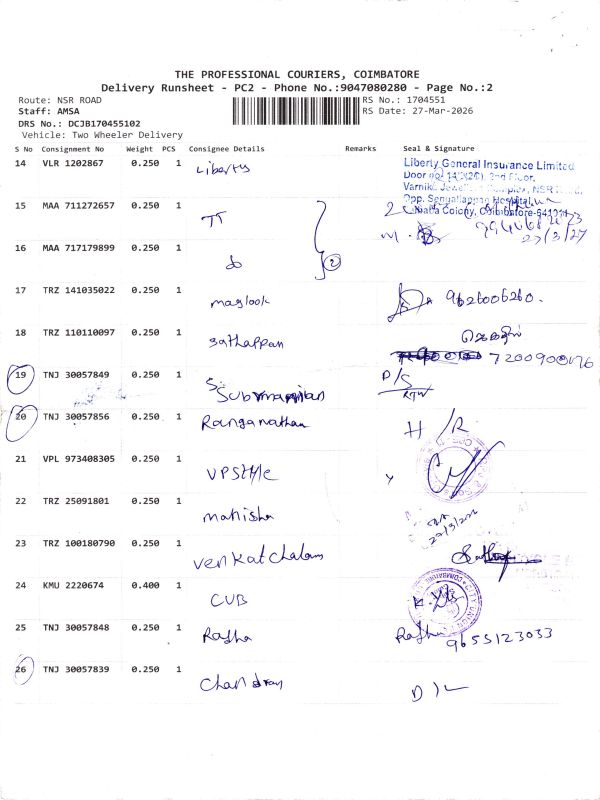 THE PROFESSIONAL COURIERS, COIMBATORE
Delivery Runsheet - PC2 - Phone No.:9047080280 - Page No.:2
Route: NSR ROAD
RS No.: 1704551
Staff: AMSA
RS Date: 27-Mar-2026
DRS No.: DCJB170455102
Vehicle: Two Wheeler Delivery
S No Consignment No Weight PCS Consignee Details Remarks Seal & Signature
14 VLR 1202867 0.250 1 Liberty
Liberty General Insurance Limited
2nd Floor,
Opp. Senguttappan Hospital,
Colony, Coimbatore-641
15 MAA 711272657 0.250 1 TT
27/3/27
16 MAA 717179899 0.250 1 do 2
17 TRZ 141035022 0.250 1 maglook 9626006260.
18 TRZ 110110097 0.250 1 Sathappan
7200900176
19 TNJ 30057849 0.250 1 S. Submanian P/S
20 TNJ 30057856 0.250 1 Ranganathan H/R
21 VPL 973408305 0.250 1 VPStyle
22 TRZ 25091801 0.250 1 Manisha
23 TRZ 100180790 0.250 1 Venkatchalam
24 KMU 2220674 0.400 1 CUB
25 TNJ 30057848 0.250 1 Radha Radhu 9655123033
26 TNJ 30057839 0.250 1 Chandran D/L